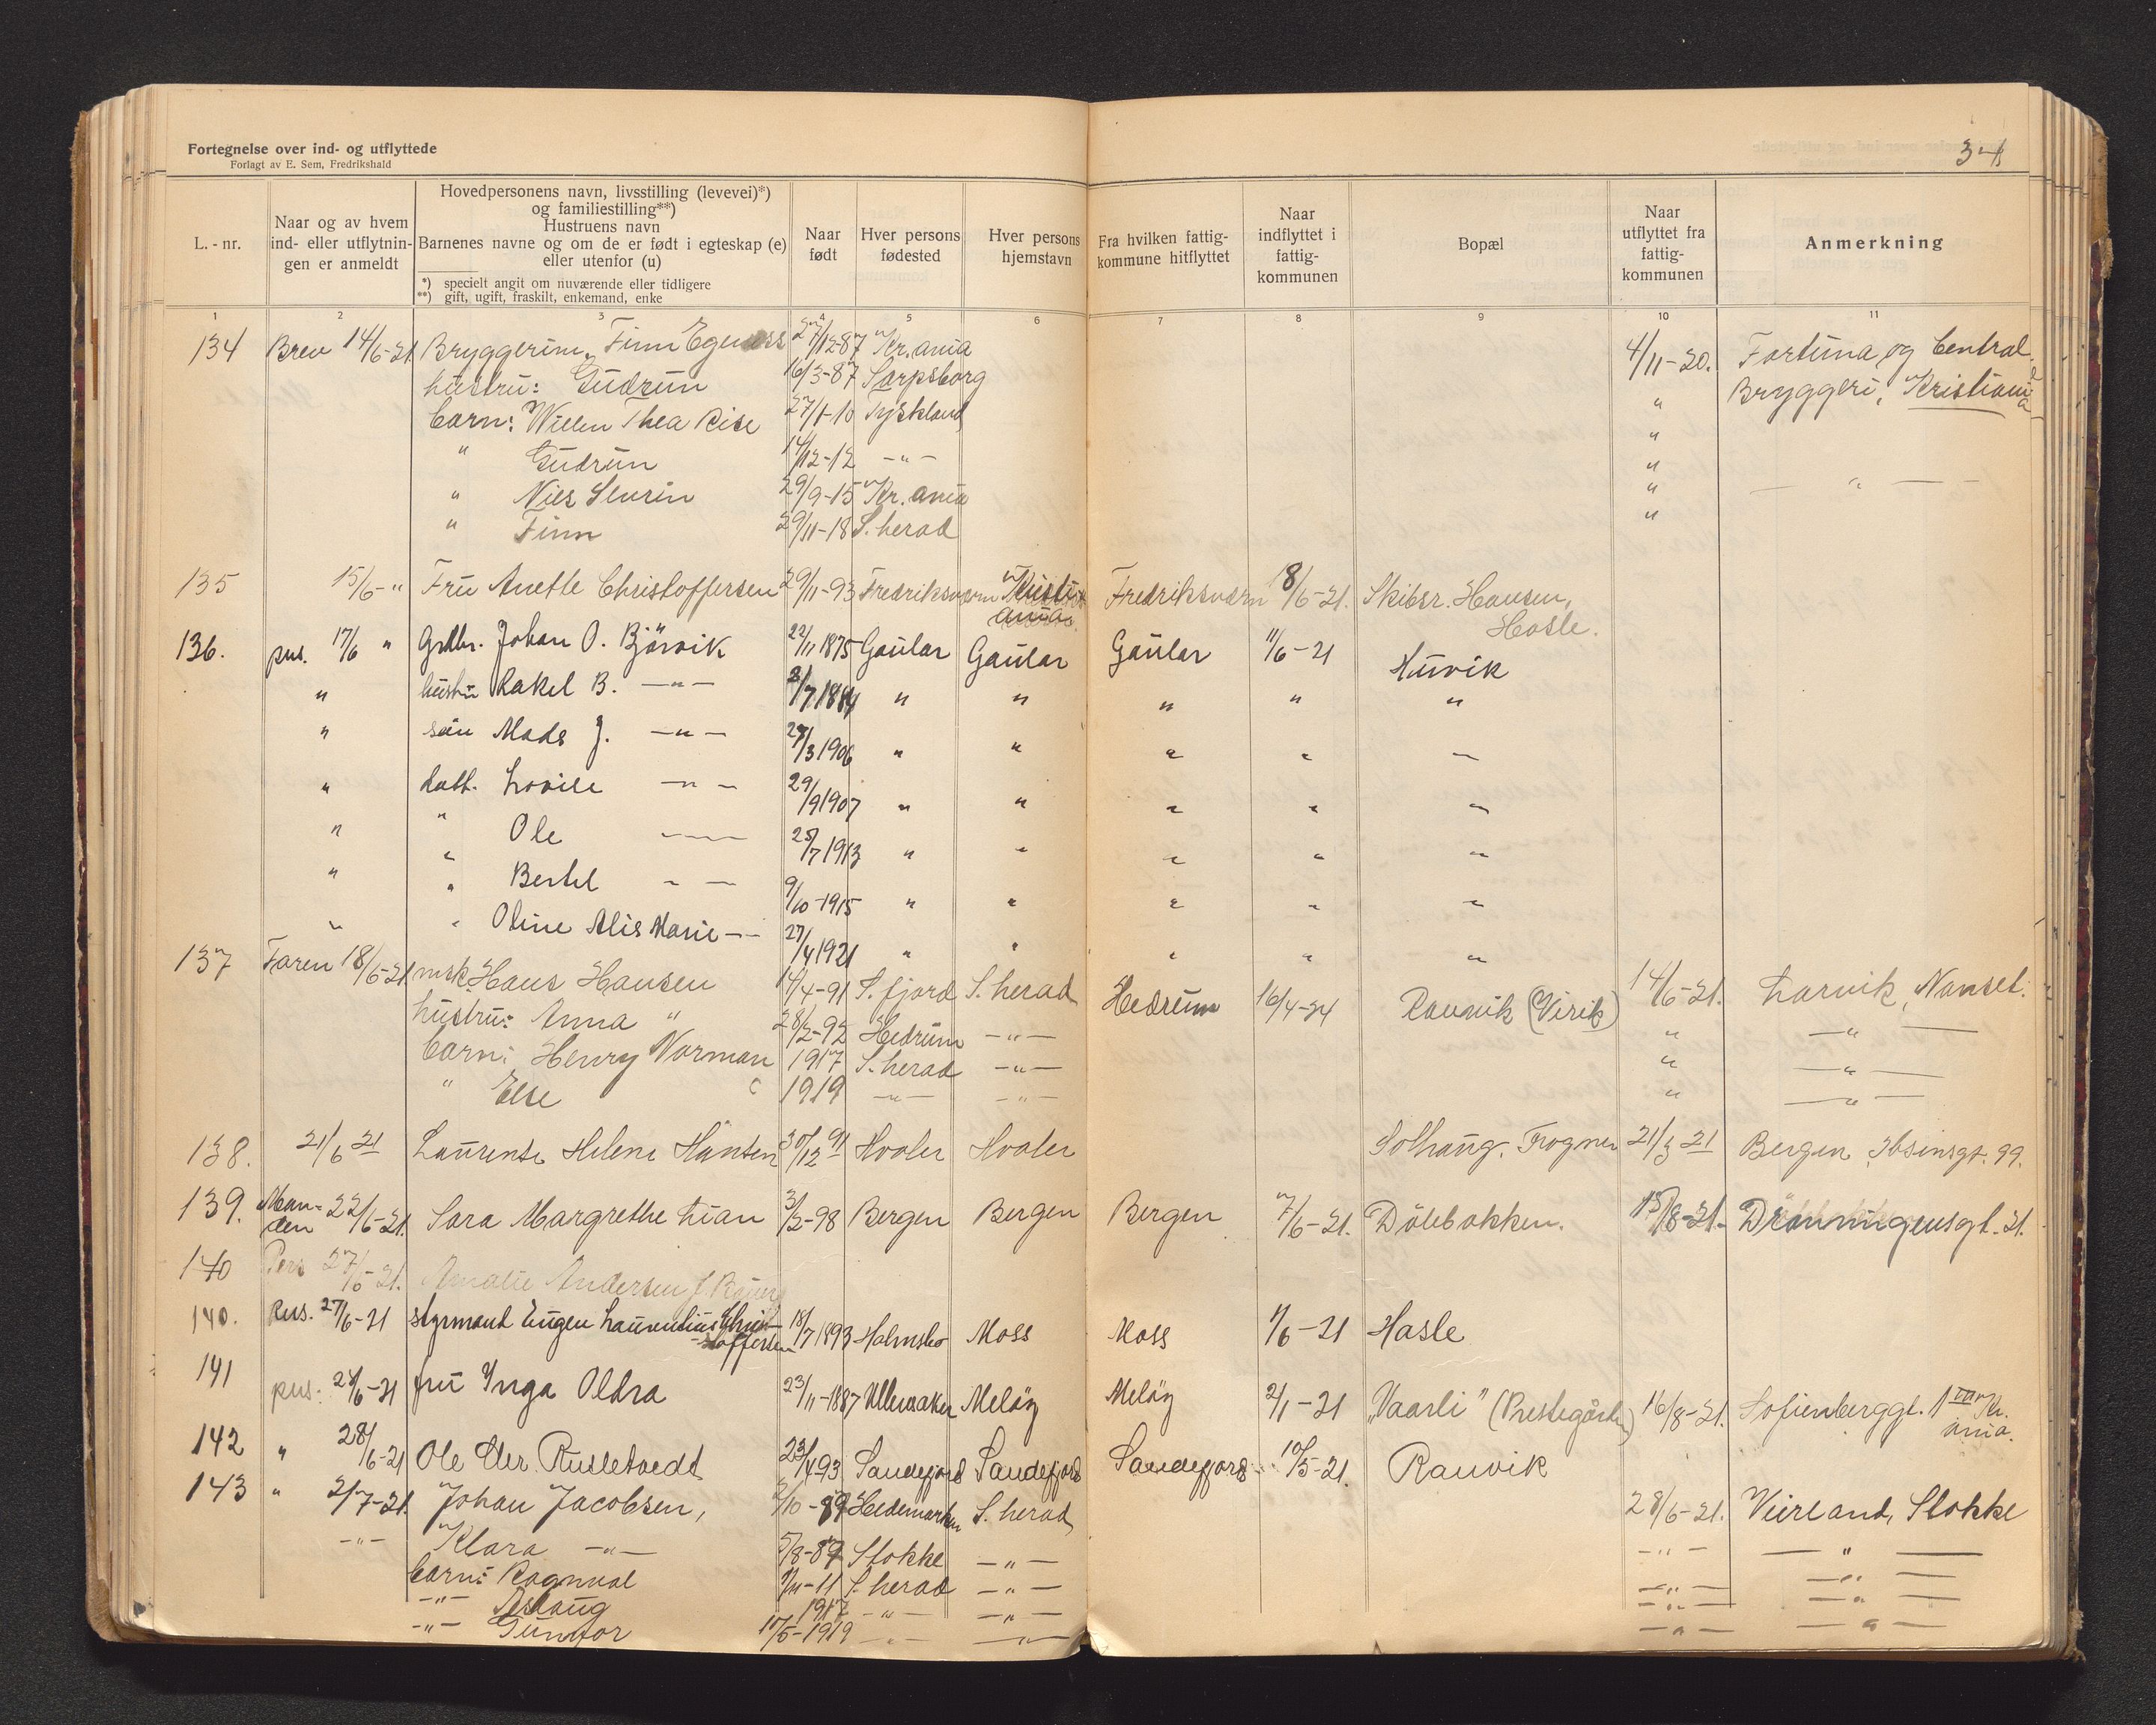 Fortegnelse over ind- og utflyttede
Forlagt av E. Sem, Fredrikshald
34
L.-nr.
Naar og av hvem ind- eller utflytnin- gen er anmeldt
Hovedpersonens navn, livsstilling (levevei)*)
og familiestilling**)
Hustruens navn
Barnenes navne og om de er født i egteskap (e)
eller utenfor (u)
*) specielt angit om nuværende eller tidligere
**) gift, ugift, fraskilt, enkemand, enke
Naar født
Hver persons fødested
Hver persons hjemstavn
Fra hvilken fattig- kommune hitflyttet
Naar indflyttet i fattig- kommunen
Bopæl
Naar utflyttet fra fattig- kommunen
Anmerkning
1 2 3 4 5 6 7 8 9 10 11
134 Brev 14/6-21. Bryggerim. Finn Egeness 27/12-87 Kr.ania 4/11-20. Fortuna og Central
hustru: Gudrun 16/3-87 Sarpsborg " Bryggeri, Kristiania
barn: Thea 27/1-10 Tyskland "
" Gudrun 14/12-12 -"- "
" Niels 29/9-15 Kr.ania " — " —
" Finn 29/11-18 S.herad "
135 15/6-" Fru Anette Christoffersen 29/11-93 Fredriksværn Kristiania Fredriksværn 18/6-21. Skibsr. Hansen,
Hasle.
136. pus. 17/6 " Johan O. Bjørvik 22/11 1875 Gaular Gaular Gaular 11/6-21 Huvik
" hustru Rakel B. —"— /7 1884 " " " " "
" søn Mads J. —"— /3 1906 " " " " —
" datt. Lovise —"— 29/9 1907 " " " " "
" " Ole —— 25/7 1913 " " " " "
" " Bertel — — 9/10-1915 " " " " "
" " Oline Alis Marie —— 27/4 1921 " " " " "
137 Faren 18/6-21. msk. Hans Hansen 14/4-91 S.fjord S.herad Hedrum 16/4-21 Ranvik (Virik) 14/6-21. Larvik, Nanset.
hustru: Anna " 28/2-92 Hedrum —"— " —"—
barn: Henry Norman 1917 S.herad —"— " —"—
" Else 1919 —"— —"— " —"—
138. 21/6 21 Laurentse Helene Hansen 30/12 91 Hvaler Hvaler Solhaug. Frogner 21/3 21 Bergen, Ibsensgt. 99.
139. Man- den 22/6-21. Sara Margrethe Lian 3/2-98 Bergen Bergen Bergen 7/6-21. Dölebakken. 15/8-21. Dronningensgt. 21.
140 Pers 27/6-21. Amalie Andersen
140. Pus. 27/6-21 styrmand Eugen Laurentius Christ-
-stoffersen 18/7 1893 Holmsbo Moss Moss 1/6-21 Hasle
141 pus. 28/6-21 fru Inga Oldra 23/11-1887 Ullensaker Meløy Meløy 2/1-21 "Vaarli" (Prestegården) 16/8-21. Sofienberggt. 1 Kr.
ania.
142 " 28/6-21 Ole Rusletvedt 23/4 93 Sandefjord Sandefjord Sandefjord 10/5-21. Ranvik
143 " 2/7-21. Johan Jacobsen, 2/10-89 Hedemarken S.herad 28/6-21. Veierland, Stokke
-"- Klara -"- 5/8-87 Stokke —"— —"— — " —
barn: Ragnval /11-11 S.herad —"— —"— —"—
-"- Aslaug 1917 -"- —"— —"— —"—
-"- Gunvor 17/5-1919 -"- —"— —"— —"—